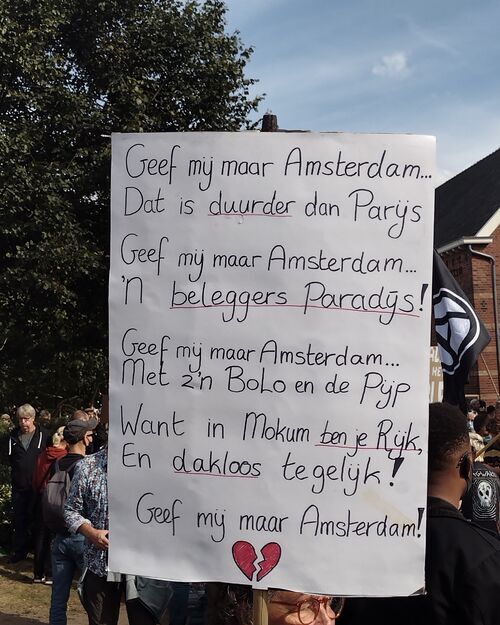 Geef mij maar Amsterdam...
Dat is duurder dan Parijs
Geef mij maar Amsterdam...
'n beleggers Paradijs!
Geef mij maar Amsterdam...
Met z'n BoLo en de Pijp
Want in Mokum ben je Rijk,
En dakloos tegelijk!
Geef mij maar Amsterdam!